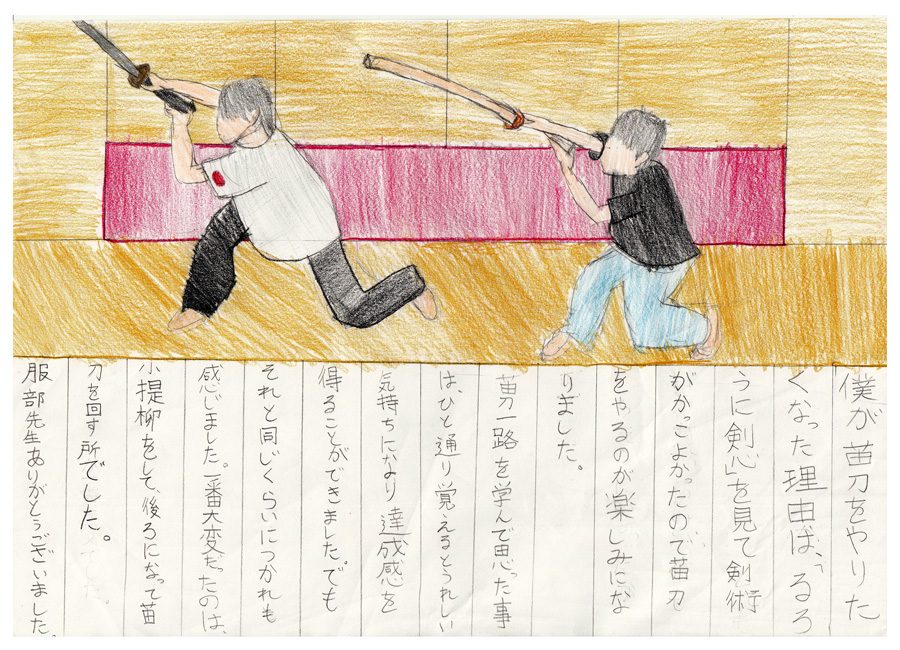 僕が苗刀をやりた
くなった理由は、「るろ
うに剣心」を見て剣術
がかっこよかったので苗刀
をやるのが楽しみにな
りました。
苗刀一路を学んで思った事
は、ひと通り覚えるとうれしい
気持ちになり達成感を
得ることができました。でも
それと同じくらいにつかれも
感じました。一番大変だったのは、
小提柳をして、後ろになって苗
刀を回す所でした。
服部先生ありがとうございました。